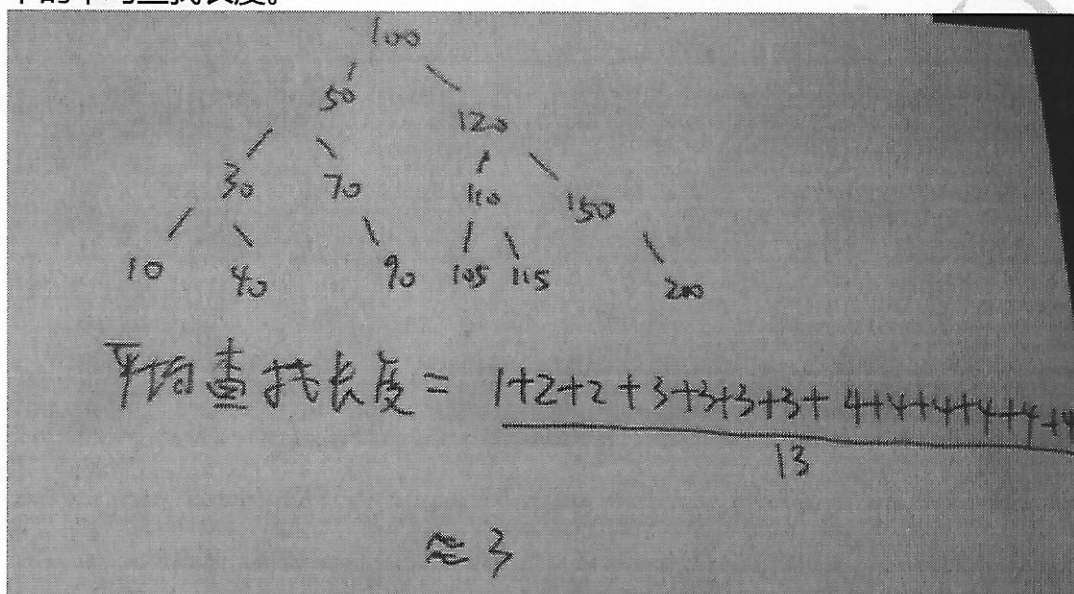 100
50 120
30 70 110 150
10 40 90 105 115 200
平均查找长度 = 1+2+2+3+3+3+3+4+4+4+4+4+4
13
≈ 3